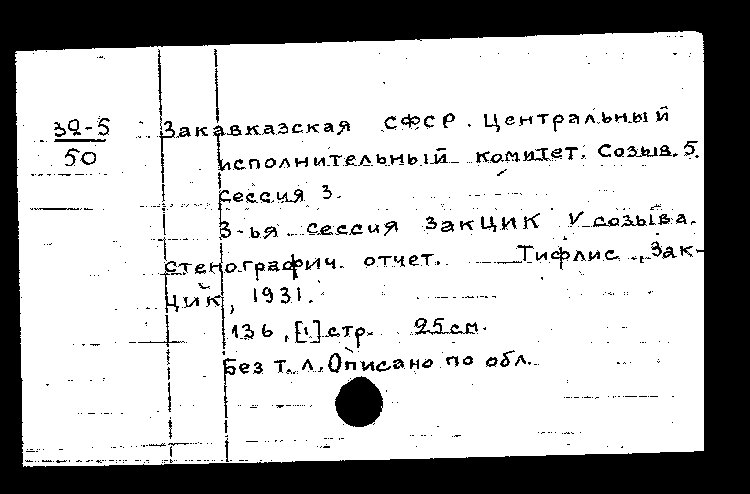 32-5
50
Закавказская СФСР. Центральный
исполнительный комитет. Созыв. 5.
Сессия 3.
3-ья сессия ЗакЦИК V созыва.
стенографич. отчет. Тифлис, Зак-
ЦИК, 1931.
136, [1] стр. 25 см.
Без т. л. Описано по обл.